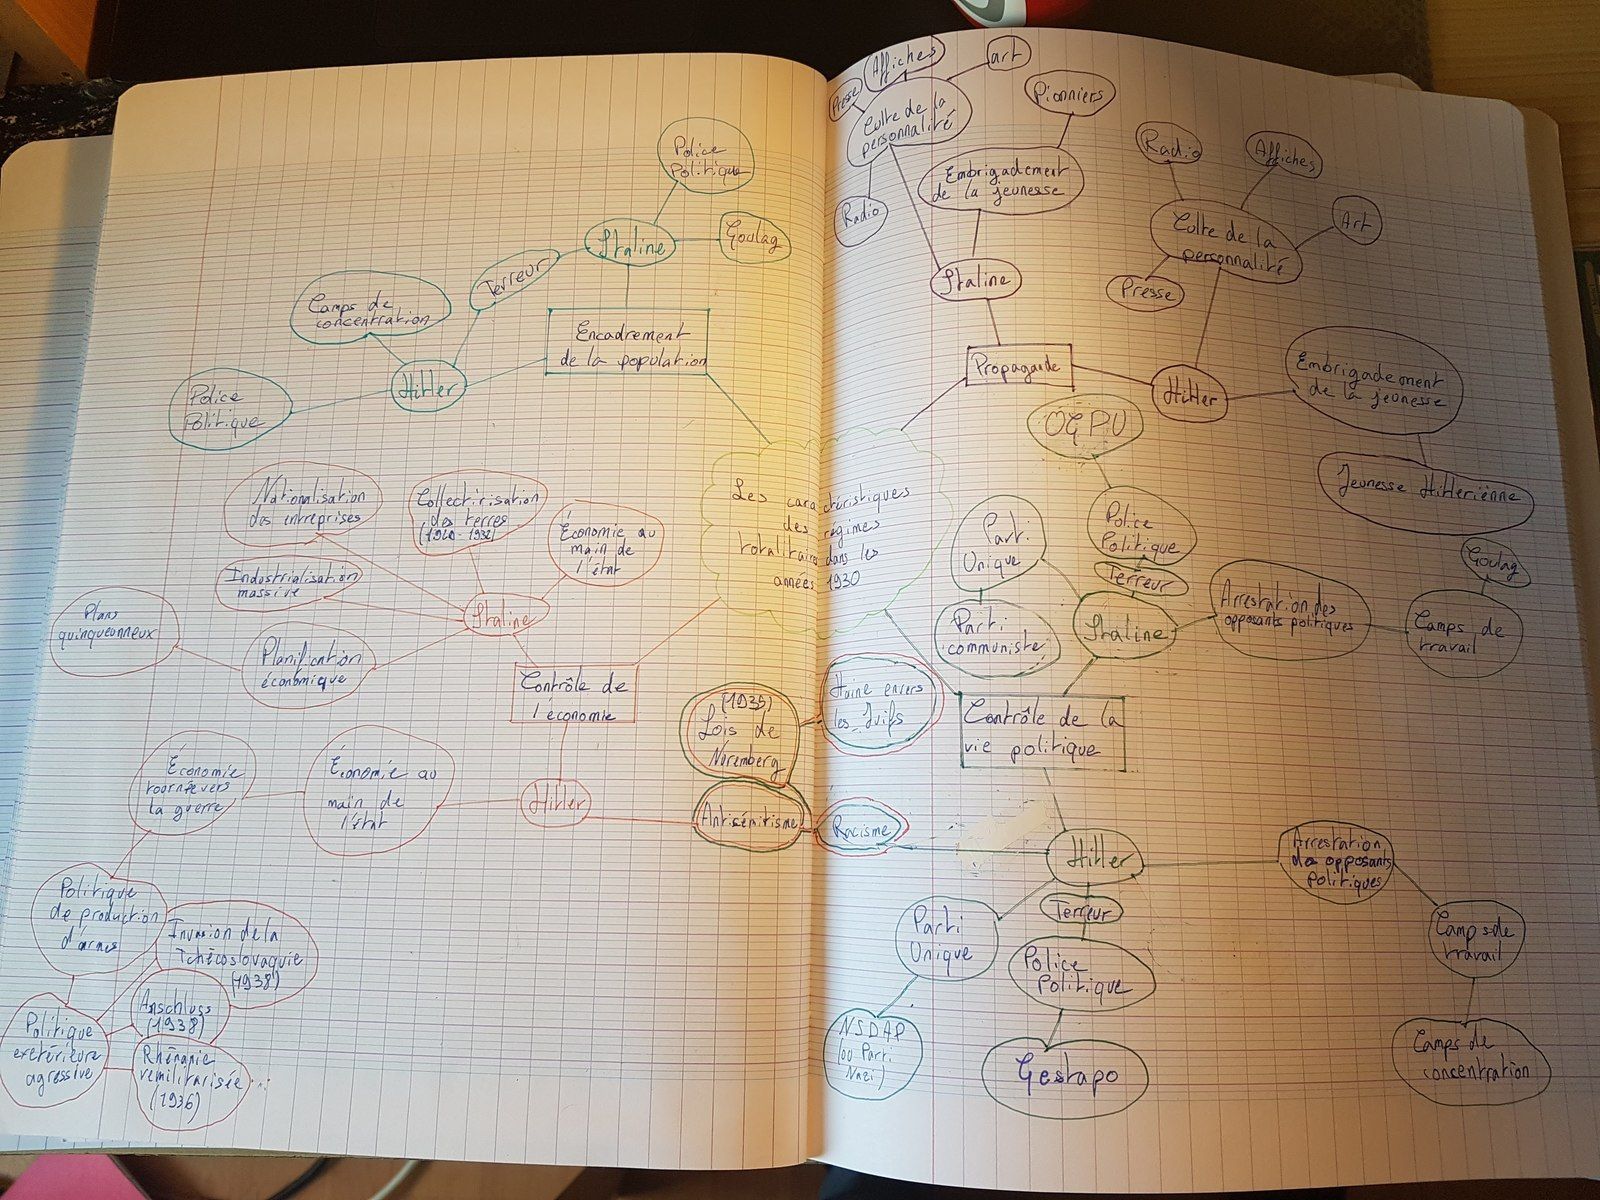 Police
Politique
Staline
Goulag
Terreur
Camps de
concentration
Encadrement
de la population
Hitler
Police
Politique
Nationalisation
des entreprises
Collectivisation
des terres
Économie au
main de
l'état
Industrialisation
massive
Plans
quinquennaux
Staline
Planification
économique
Contrôle de
l'économie
Économie
tournée vers
la guerre
Économie au
main de
l'état
Hitler
Politique
de production
d'armes
Invasion de la
Tchécoslovaquie
(1938)
Anschluss
(1938)
Politique
extérieure
agressive
Rhénanie
remilitarisée
(1936)
Les caractéristiques
des régimes
totalitaires dans les
années 1930
(1935)
Lois de
Nuremberg
Haine envers
les Juifs
Antisémitisme
Racisme
Affiches
art
Presse
Culte de la
personnalité
Pionniers
Embrigadement
de la jeunesse
Radio
Staline
Radio
Affiches
Art
Culte de la
personnalité
Presse
Propagande
Hitler
Embrigadement
de la jeunesse
Jeunesse Hitlérienne
OGPU
Police
Politique
Parti
Unique
Terreur
Parti
communiste
Staline
Arrestation des
opposants politiques
Goulag
Camps de
travail
Contrôle de la
vie politique
Hitler
Arrestation
des opposants
politiques
Terreur
Parti
Unique
Police
Politique
Camps de
travail
NSDAP
(ou Parti
Nazi)
Gestapo
Camps de
concentration